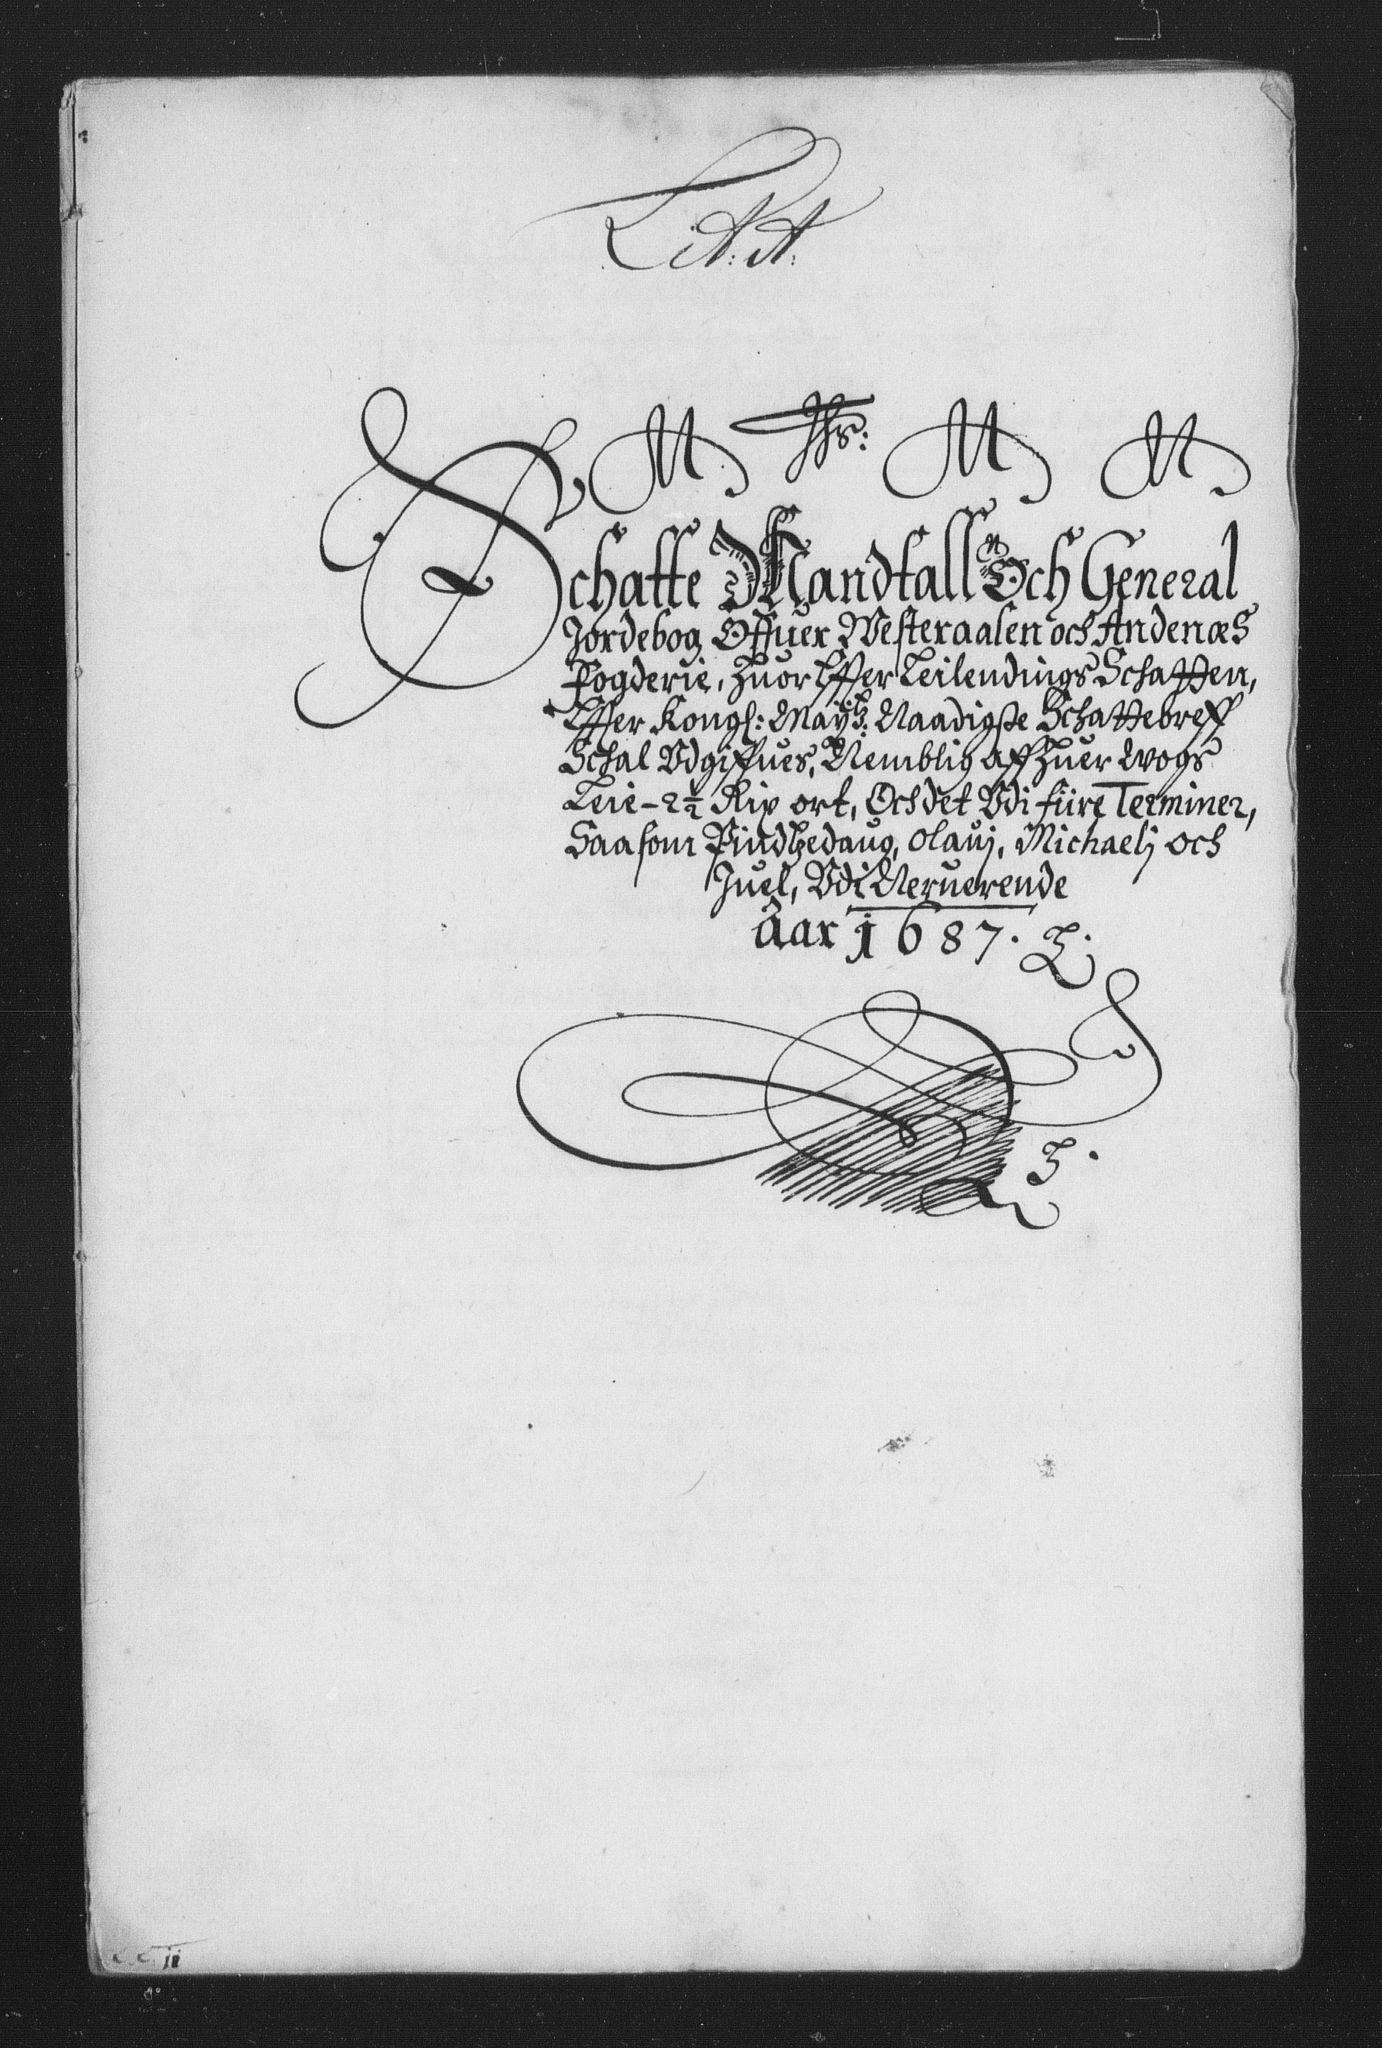 Lit: A:
Ihs:
Schatte Mandtall Och General
Jordebog Offuer Westeraalen och Andenæs
Fogderie, huor Effter Leilendings Schatten,
Effter Kongl: Maytz: Naadigste Schattebreff
Schal Udgiffues, Nemblig aff huer Wogs
Leie - 2½ Rix ort, Och det Udi fiire Terminer,
Saasom Pindtzedaug, Olauj, Michaelj och
Juel, Udi Neruerende
Aar 1687.